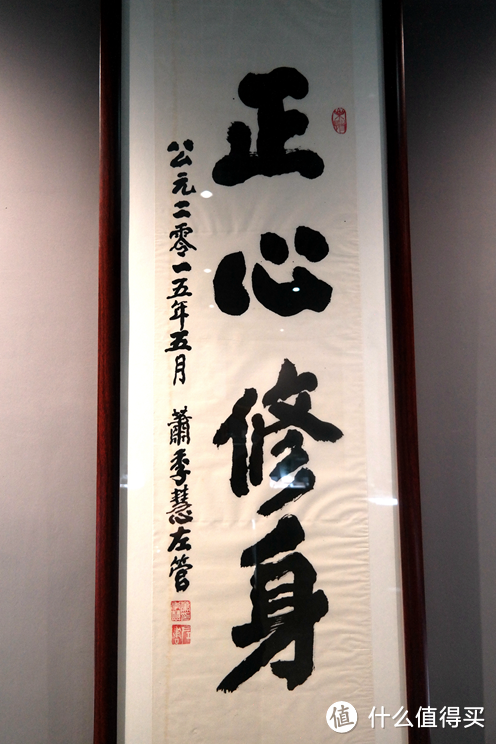 正心修身
公元二零一五年五月 蕭季慧左管
什么值得买